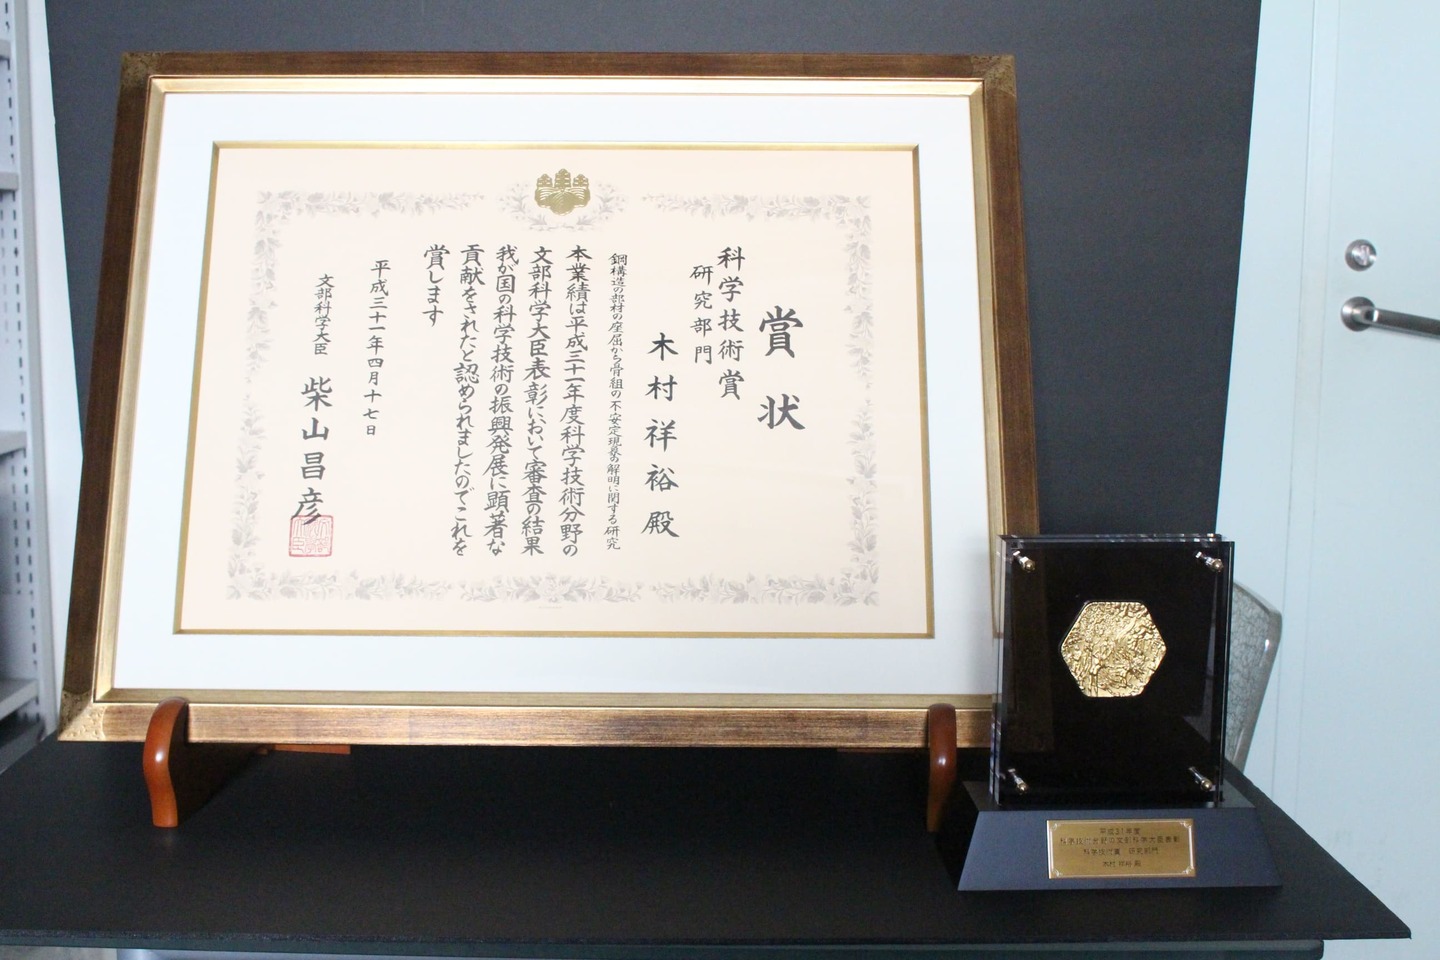 賞状
科学技術賞
研究部門
木村祥裕殿
鋼構造の部材の座屈から骨組の不安定現象の解明に関する研究
本業績は平成三十一年度科学技術分野の
文部科学大臣表彰において審査の結果
我が国の科学技術の振興発展に顕著な
貢献をされたと認められましたのでこれを
賞します
平成三十一年四月十七日
文部科学大臣
柴山昌彦
平成31年度
科学技術分野の文部科学大臣表彰
科学技術賞 研究部門
木村 祥裕 殿